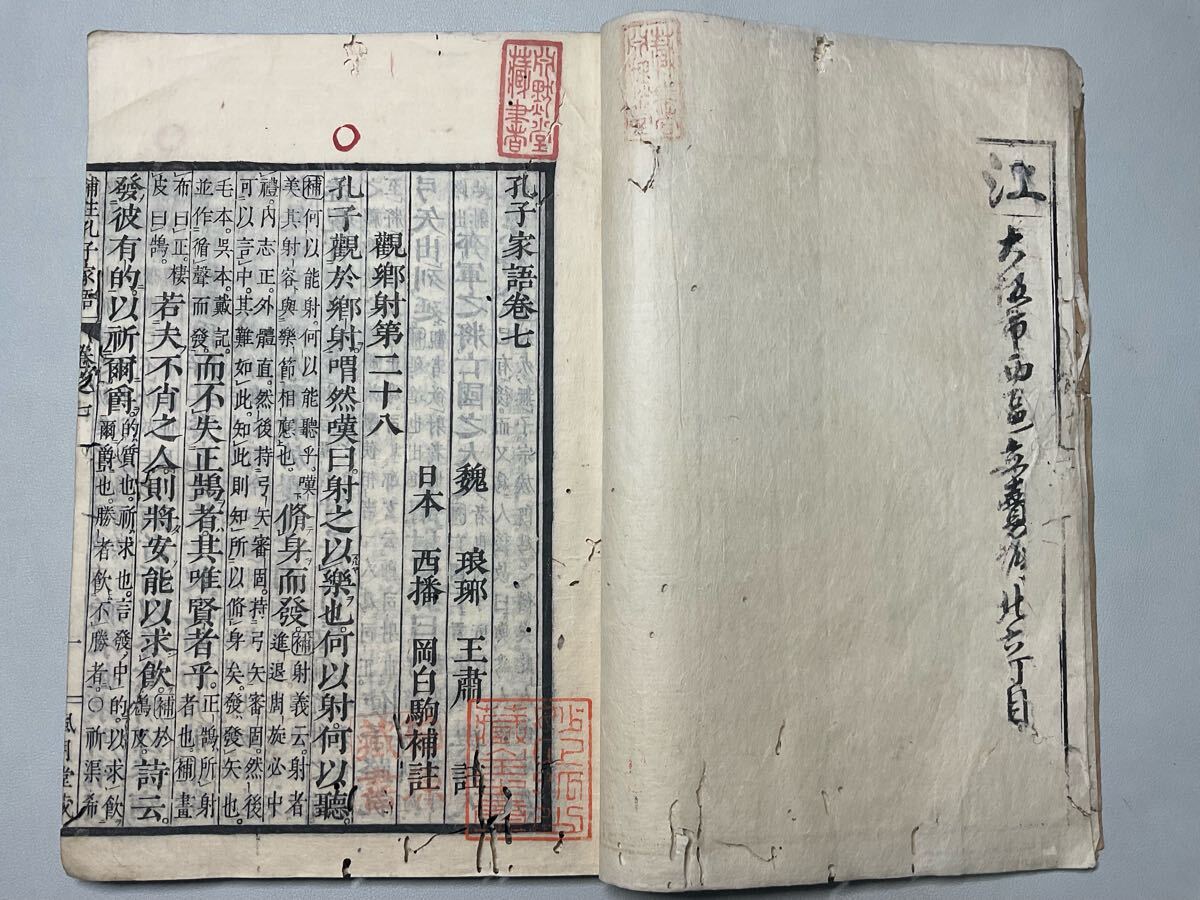 江
大阪市西區京町堀北六丁目
藏書
孔子家語卷七
魏 琅琊 王肅 註
日本 西播 岡白駒補註
觀鄉射第二十八
孔子觀於鄉射。喟然嘆曰。射之以樂也。何以射。何以聽。
補何以能射。何以能聽乎。嘆美其射容與樂節相應也。脩身而發。補射義云。射者進退周旋必中
禮。內志正。外體直。然後持弓矢審固。持弓矢審固。然後可以言中。其難如此。知此則知所以脩身矣。發。發矢也。
毛本。吳本。戴記。並作循聲而發。而不失正鵠者。其唯賢者乎。正鵠所射者也。補畫
布曰正。棲皮曰鵠。若夫不肖之人。則將安能以求飮。補於鵠反。詩云。
發彼有的。以祈爾爵。的。質也。祈。求也。言發中的。以求飮爾爵也。勝者飮不勝者。○祈渠希
補註孔子家語
卷之七
一
風月堂藏